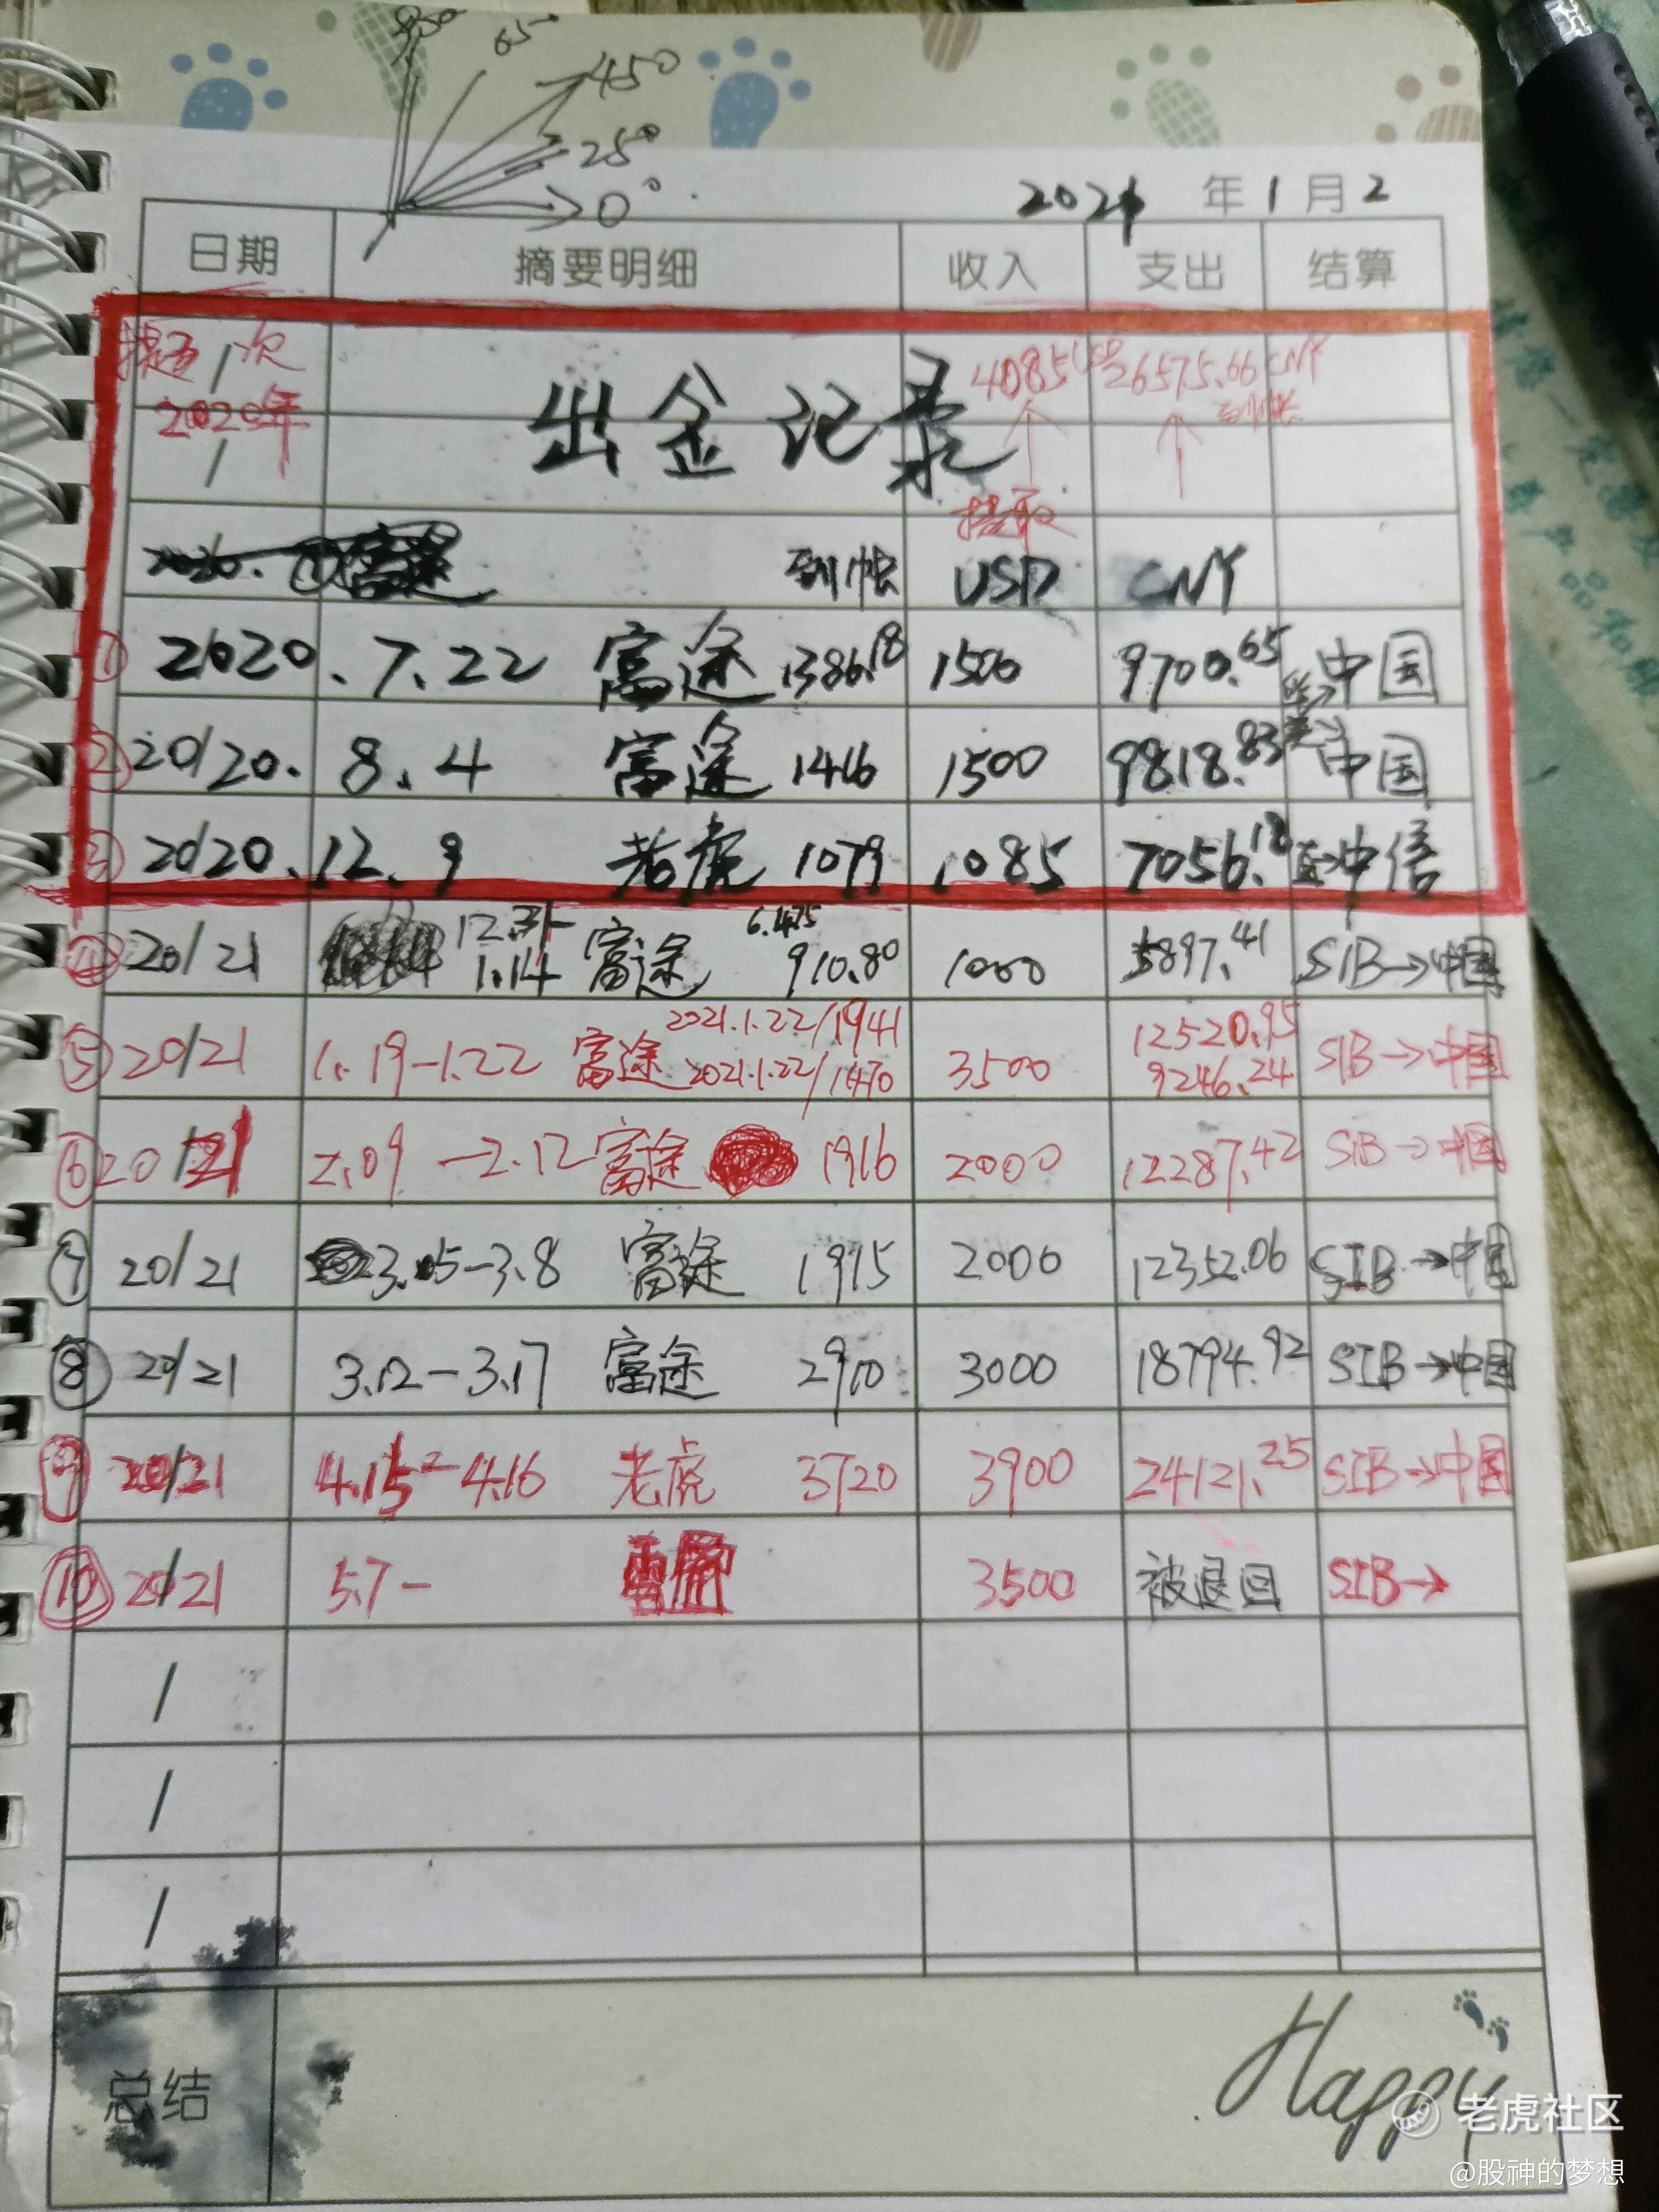 65°
45°
25°
0°
2021 年 1 月 2
日期 摘要明细 收入 支出 结算
/ 次 4085USD 26575.66CNY
2020年 出金记录 到帐
/
提取
2020. 到帐 USD CNY
① 2020.7.22 富途 1386.18 1500 9700.65 中国
② 20/20. 8.4 富途 1416 1500 9818.83 中国
③ 20/20. 12.9 老虎 1079 1085 7056.18 中信
④ 20/21 12.31- 6.475
1.14 富途 910.80 1000 5897.41 SIB→中国
⑤ 20/21 1.19-1.22 富途 2021.1.22/1941 3500 12520.95 SIB→中国
2021.1.22/1470 9246.24
⑥ 20/21 2.09-2.12 富途 1916 2000 12287.42 SIB→中国
⑦ 20/21 3.05-3.8 富途 1915 2000 12352.06 SIB→中国
⑧ 20/21 3.12-3.17 富途 2910 3000 18794.92 SIB→中国
⑨ 20/21 4.15-4.16 老虎 3720 3900 24121.25 SIB→中国
⑩ 20/21 5.7- 3500 被退回 SIB→
/
/
/
总结
Happy
老虎社区
@股神的梦想